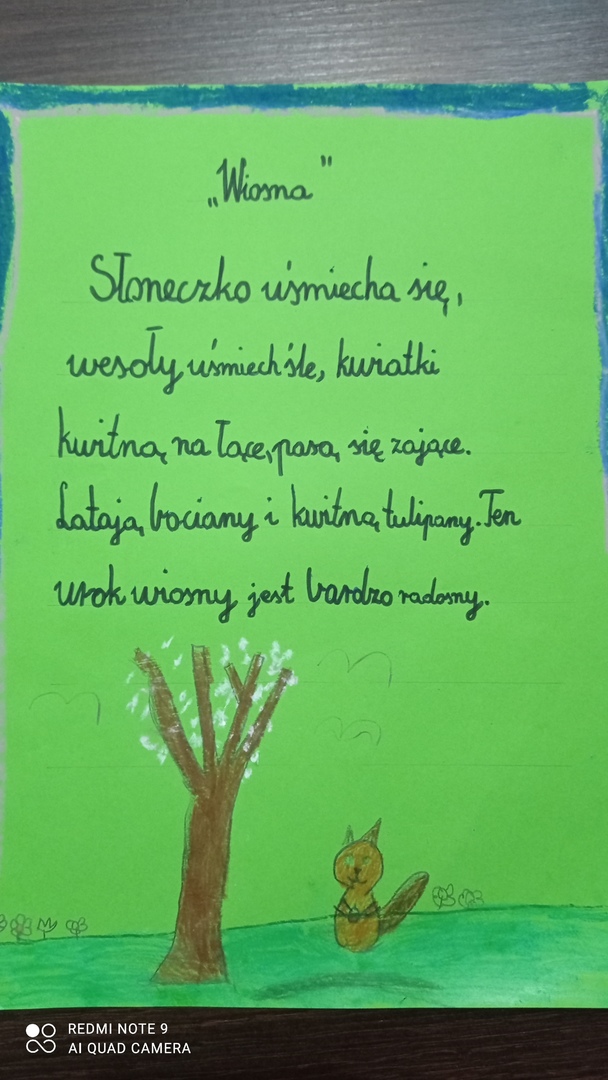 „Wiosna"
Słoneczko uśmiecha się,
wesoły uśmiech śle, kwiatki
kwitną na łące, pasą się zające.
Latają bociany i kwitną tulipany. Ten
urok wiosny jest bardzo radosny.
REDMI NOTE 9
AI QUAD CAMERA